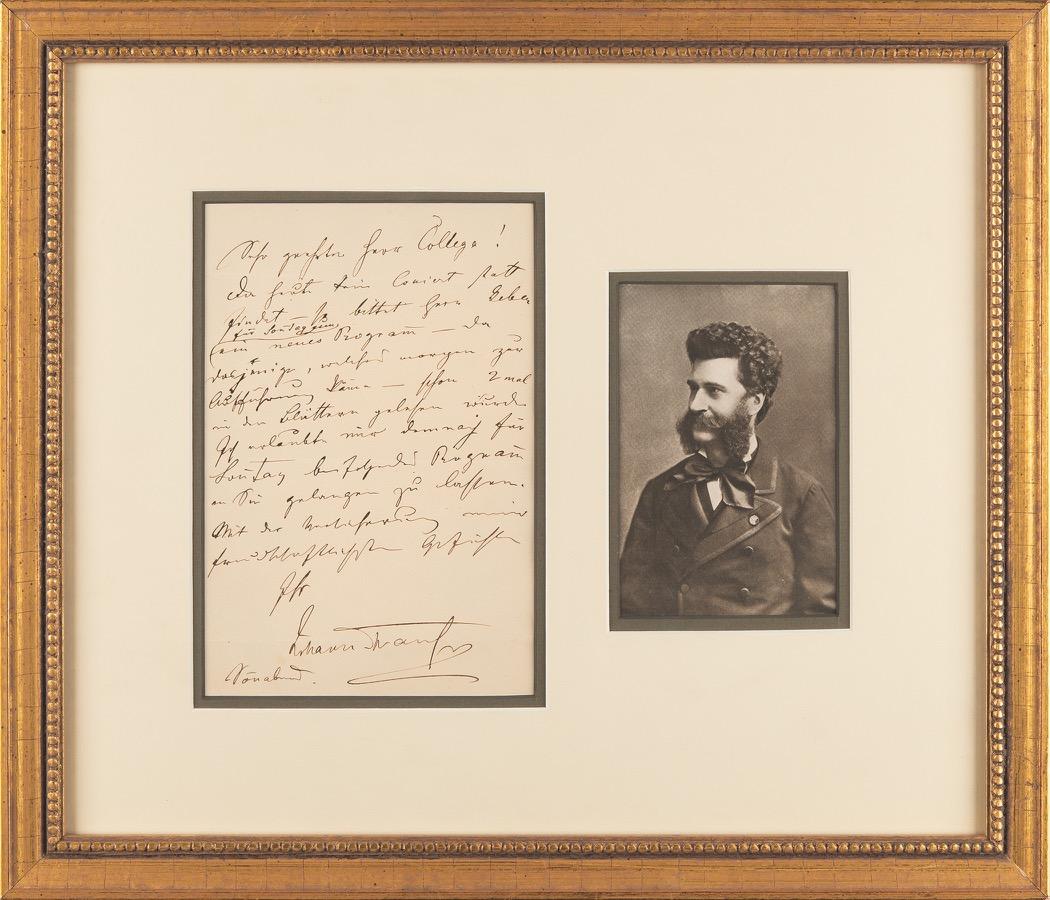 Sehr geehrter Herr Collega!
Da heute kein Concert statt
findet – so bittet Herr
für Sontag zum
ein neues Program – da
dasjenige, welches morgen zur
Aufführung käme – schon 2 mal
in den Blättern gelesen wurde
Ich erlaubte mir demnach für
Sontag beifolgendes Program
an Sie gelangen zu lassen.
Mit der Versicherung meiner
freundschaftlichsten Gefühle
Ihr
Johann Strauss
Sonabend.